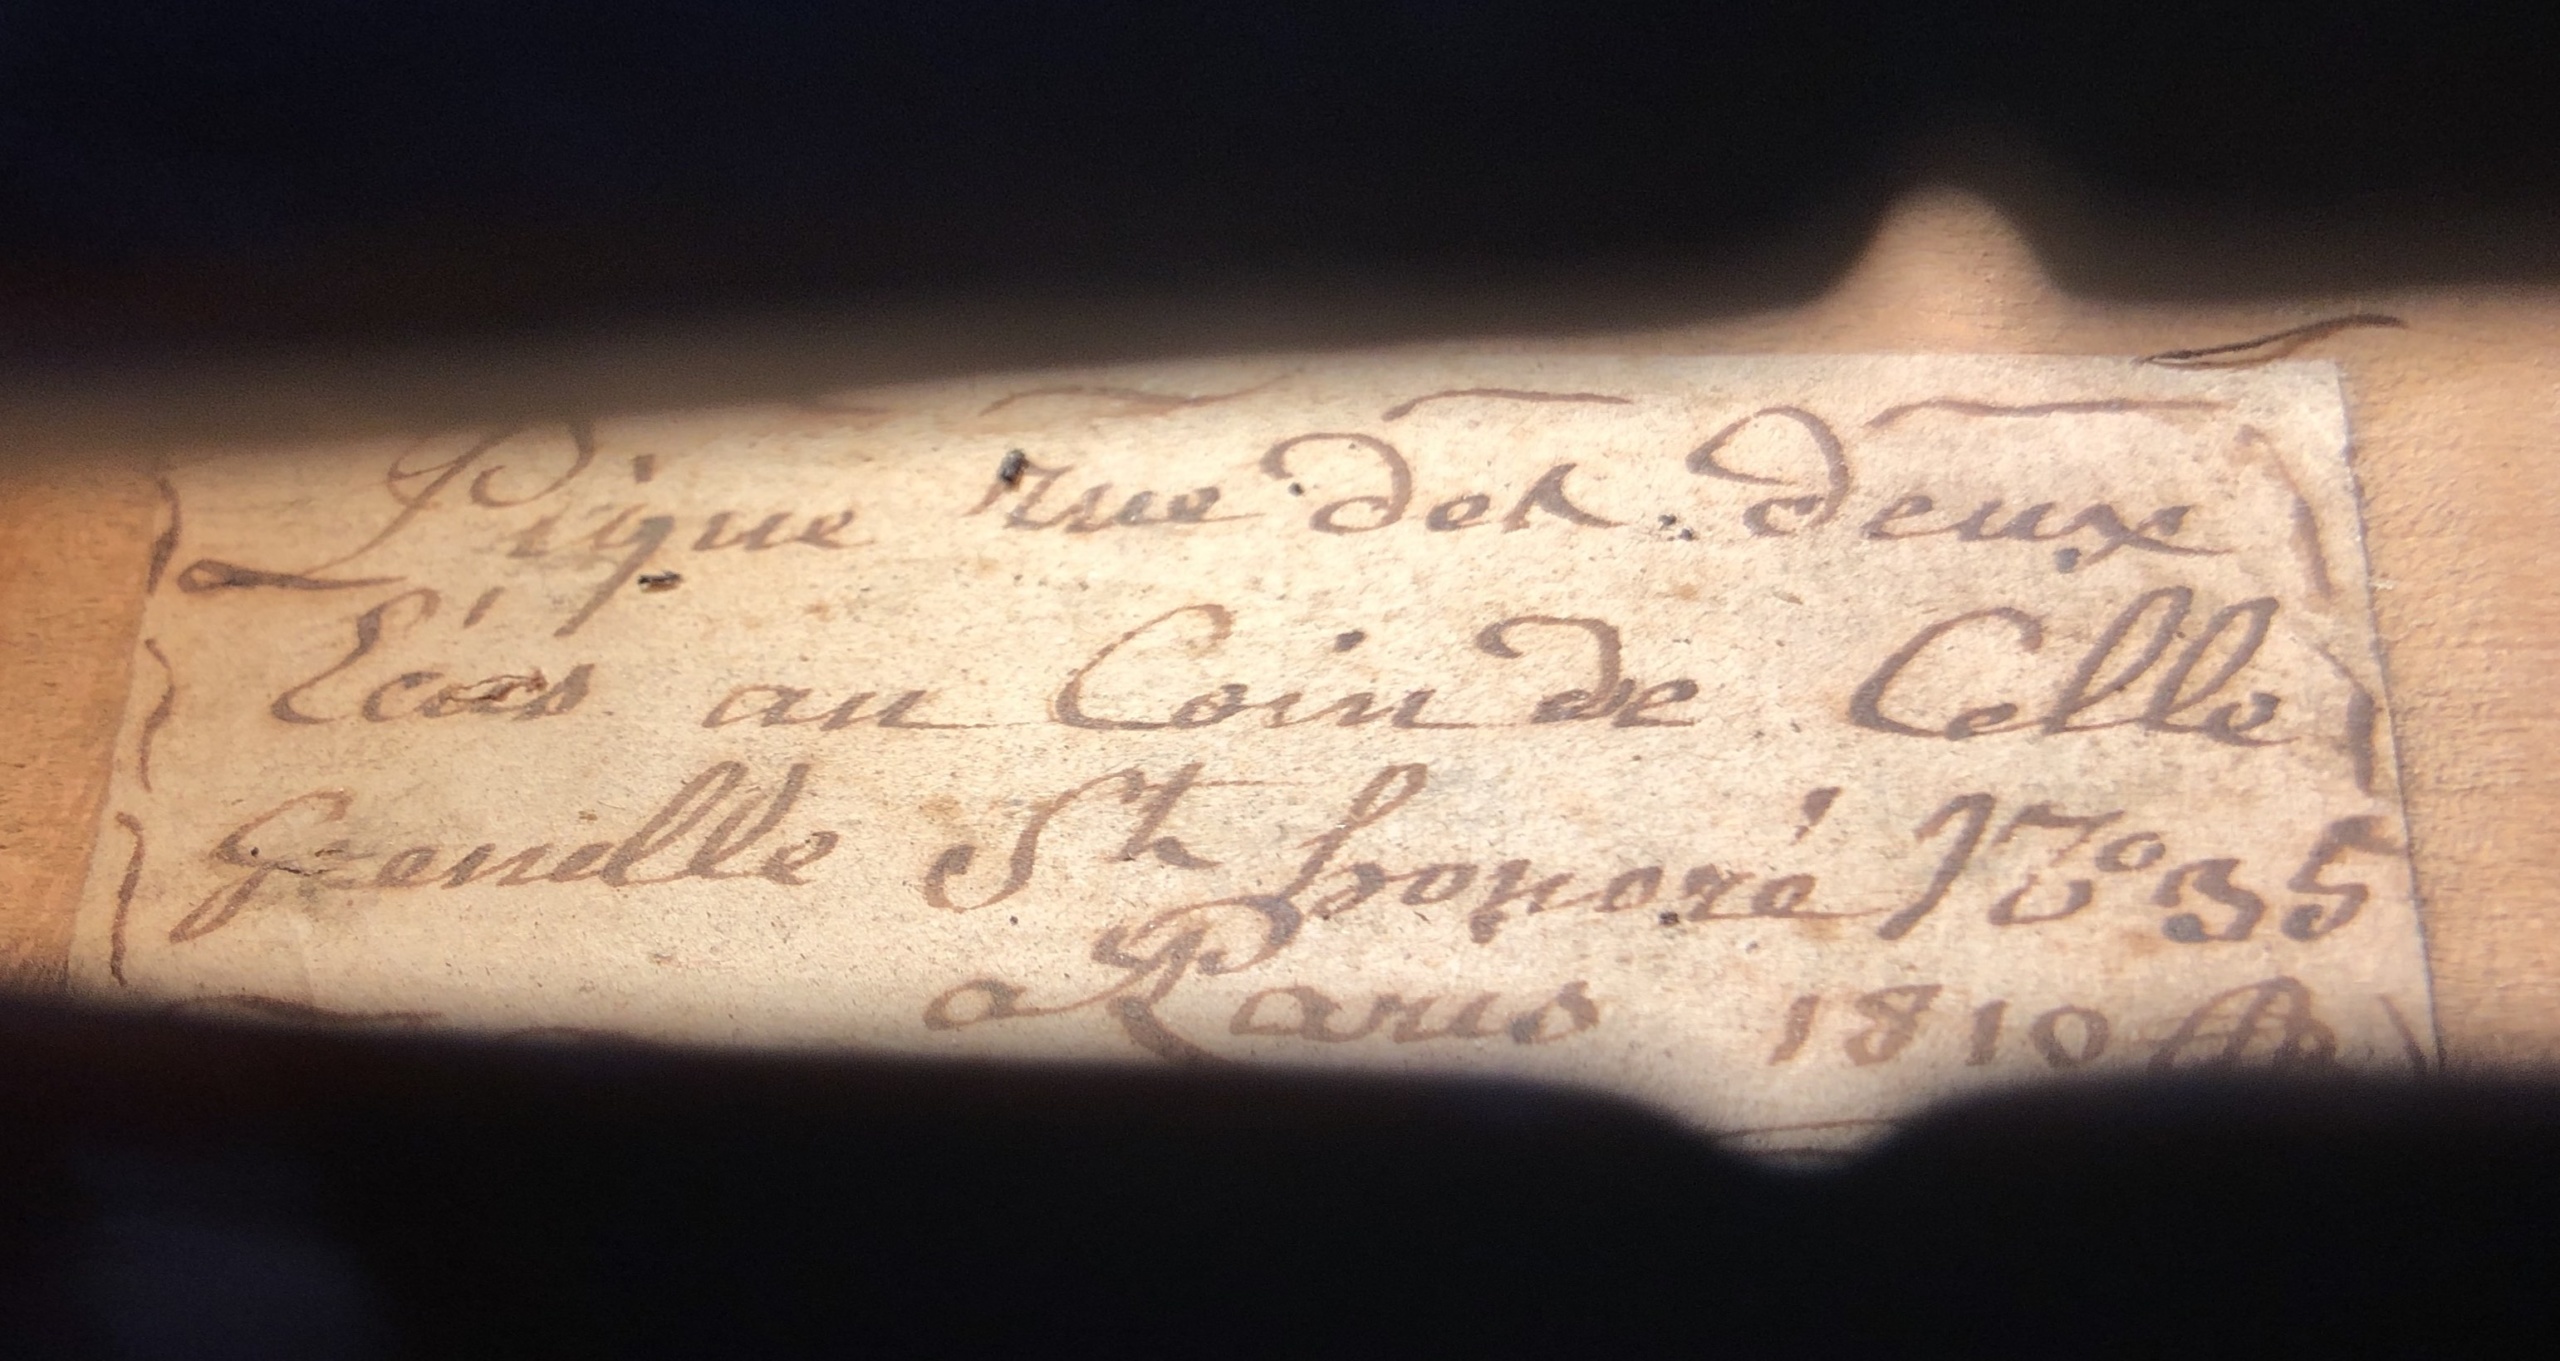 Pique rue des deux
Écus au Coin de Celle
Grenelle St honoré No 35
a Paris 1810